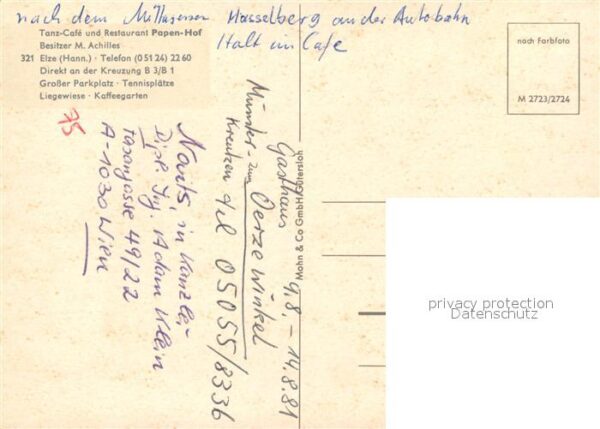 nach dem Mittagessen Hasselberg an der Autobahn
Halt im Cafe
Tanz-Café und Restaurant Papen-Hof
Besitzer M. Achilles
321 Elze (Hann.) · Telefon (05124) 2260
Direkt an der Kreuzung B 3/B 1
Großer Parkplatz · Tennisplätze
Liegewiese · Kaffeegarten
nach Farbfoto
M 2723/2724
75
Gasthaus 9.8. – 14.8.81
Münster- zum Oerzewinkel
Kreutzen Tel 05055/8336
in Kanzlei
Dipl. Ing. Adam Klein
49/22
A-1030 Wien
Mohn & Co GmbH Gütersloh
privacy protection
Datenschutz